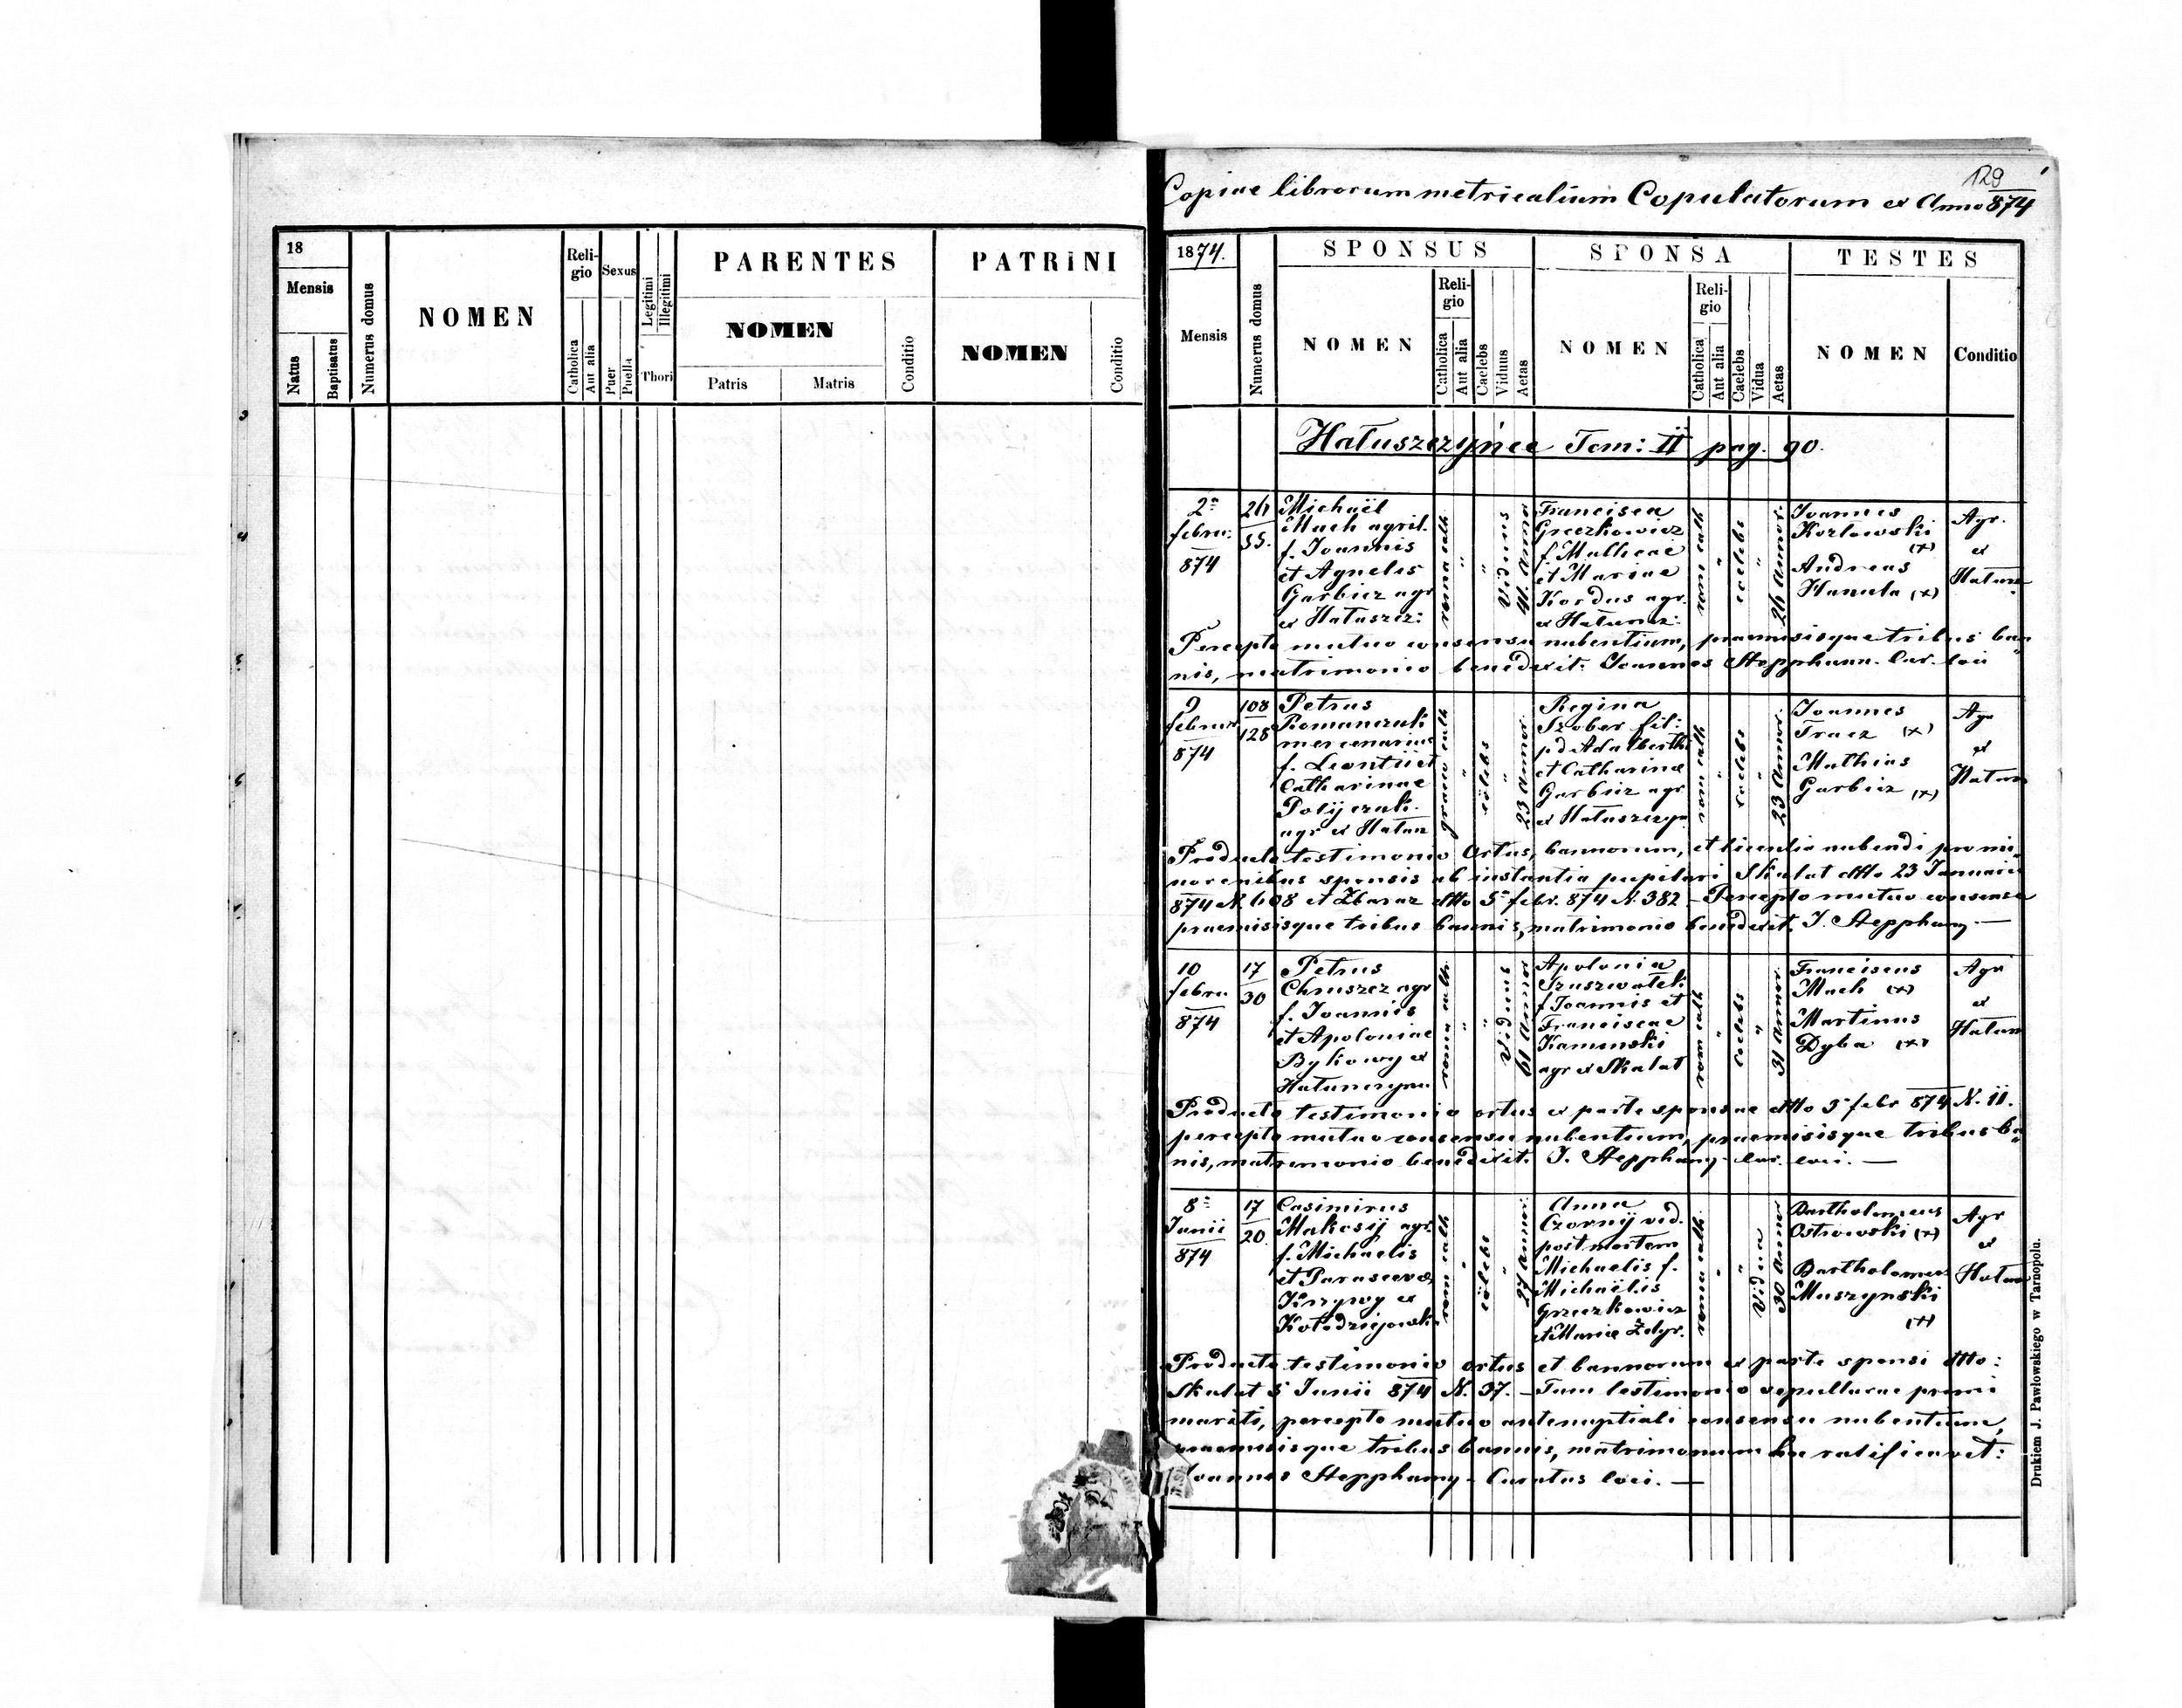 18
Mensis
Natus
Baptisatus
Numerus domus
NOMEN
Reli-
gio
Catholica
Aut alia
Sexus
Puer
Puella
Legitimi
Illegitimi
Thori
PARENTES
NOMEN
Patris
Matris
Conditio
PATRiNI
NOMEN
Conditio
129
Copiae librorum metricalium Copulatorum ex Anno 874
1874.
Mensis
Numerus domus
SPONSUS
NOMEN
Reli-
gio
Catholica
Aut alia
Caelebs
Viduus
Aetas
SPONSA
NOMEN
Reli-
gio
Catholica
Aut alia
Caelebs
Vidua
Aetas
TESTES
NOMEN
Conditio
Hałuszczyńce Tom: II pag. 90.
2a
febru:
874
55.
Michaël
Mach agric.
f. Joannis
et Agnetis
Garbicz agr
ex Hałuszcz:
roma cath
Viduus
41. Anno
Francisca
Greczkowicz
f. Matheae
et Mariae
Kordus agr.
ex Hałuncz:
rom cath
coelebs
26 Annor.
Joannes
Kozłowski
(+)
Andreas
Hanula (+)
Agr.
ex
Hałun
Percepto mutuo consensu nubentium, praemisisque tribus ban
nis, matrimonio benedixit: Joannes Stepphann. Cur. loci
9
februr
874
108
128
Petrus
Romanczuk
mercenarius
f. Leontii et
Catharinae
agr ex Hałun
graeco cath
cölebs
23 Annor.
Regina
Szober fil:
pd Adalberthi
et Catharinae
Garbicz agr
ex Hałuszczyn
rom cath
coelebs
23 Annor.
Joannes
Tracz (+)
Mathias
Garbicz (+)
Agr
ex
Hałun
Producto testimonio Ortus, bannorum, et licentia nubendi pro mi
norenibus sponsis ab instantia pupilari Skałat dtto 23 Januarii
874 N. 608 et Zbaraz dtto 5a febr. 874 N. 382 – Percepto mutuo consensu
praemisisque tribus bannis, matrimonio benedixit. J. Stepphany —
10
febru.
874
17
30
Petrus
Chruszcz agr
f. Joannis
et Apoloniae
Bykowy ex
Hałunczyn
roma cath
Viduus
61 Annor
Apolonia
f Joannis et
Franciscae
Kamenski
agr ex Skałat
rom cath
Coelebs
31 Annor.
Franciscus
Mach (+)
Martinus
Dyba (+)
Agr
ex
Hałun
Producto testimonio ortus ex parte sponsae dtto 5a febr 874 N. 11.
percepto mutuo consensu nubentium, praemisisque tribus ba
nis, matrimonio benedixit. J. Stepphany Cur. loci. —
8a
Junii
874
17
20.
Casimirus
f. Michaelis
et Parascevae
Krzywy ex
rom cath
cölebs
27 Annor.
Anna
Czornÿ vid.
post mortem
Michaelis f.
Michaëlis
Grzeczkowicz
roma cath
Vidua
30 Annor
Bartholomeus
Ostrowski (+)
Bartholomeus
Muszynski
(+)
Agr
ex
Hałun
Producto testimonio ortus et bannorum ex parte sponsi dtto:
Skałat 5 Junii 874 N. 37. – Tum testimonio sepulturae primi
mariti, percepto mutuo antenuptiali consensu nubentium,
praemisisque tribus bannis, matrimonium hoc ratificavit:
Joannes Stepphany – Curatus loci. —
Drukiem J. Pawłowskiego w Tarnopolu.